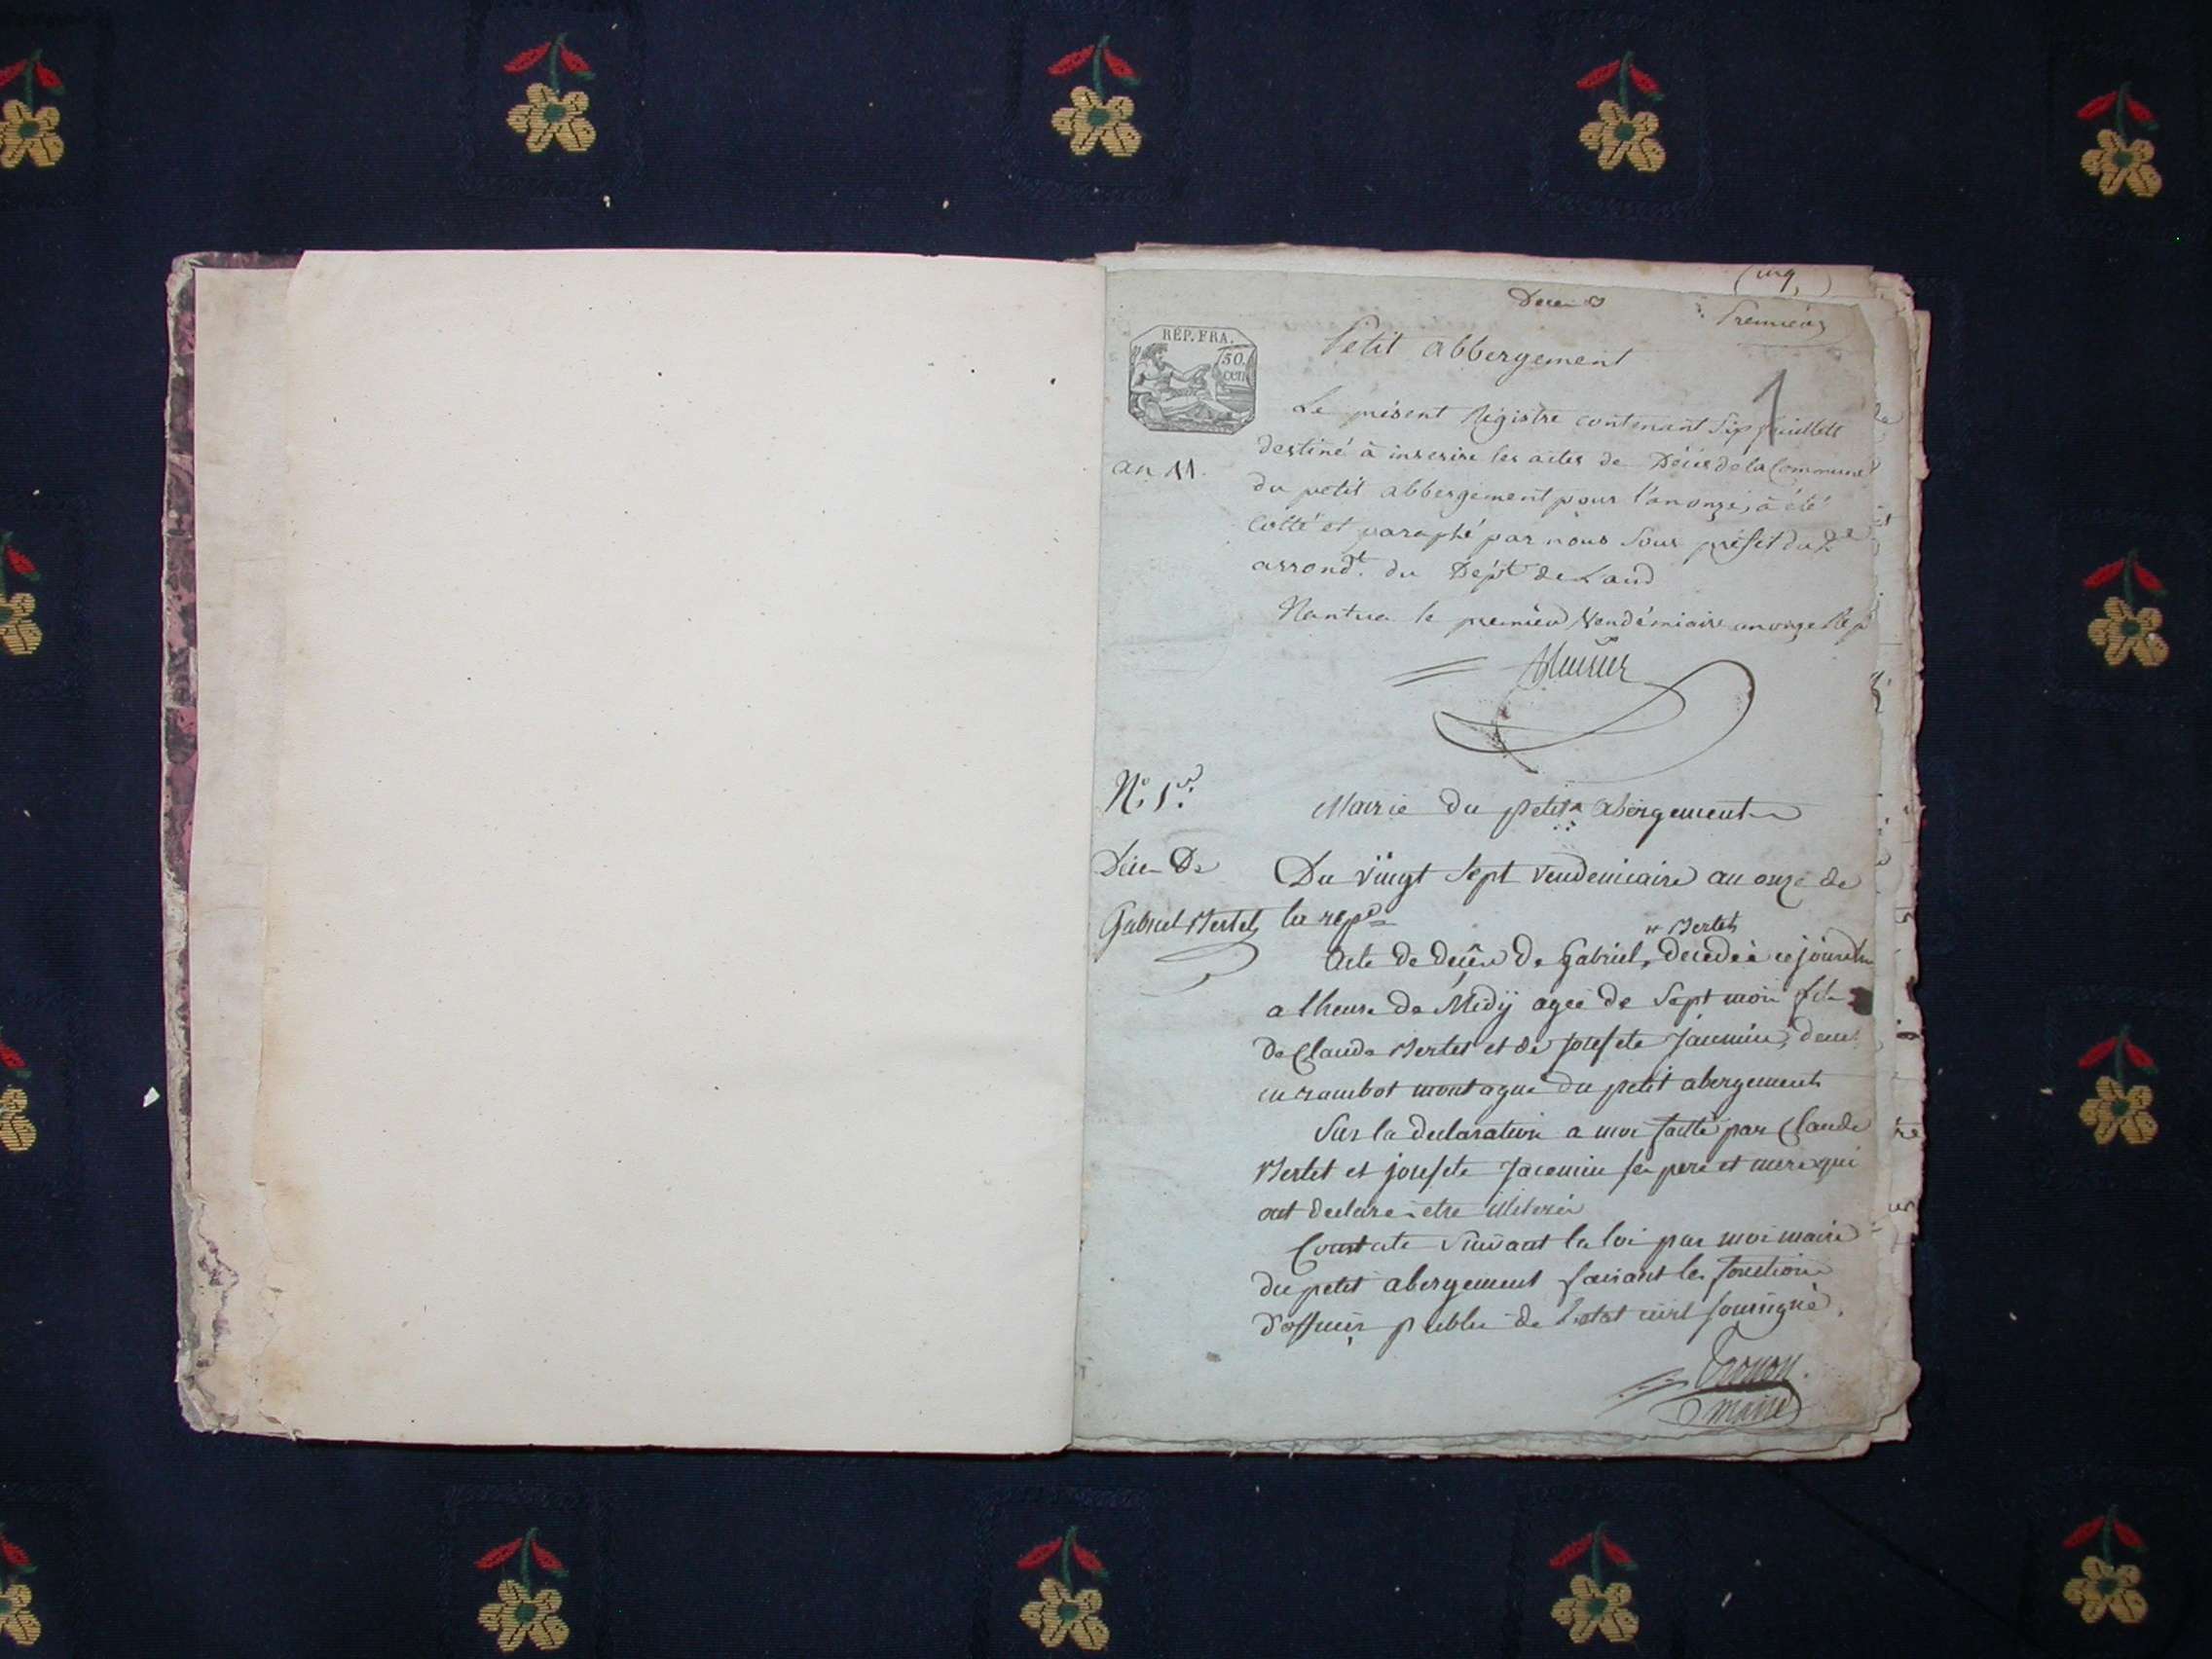 Décès
Premier
RÉP. FRA.
50.
cen
Petit abbergement
1
Le présent Régistre contenant Sip feuillets
an 11.
destiné à inscrire les actes de Décès de la Commune
du petit abbergement pour l'an onze, à été
Cotté et paraphé par nous Sous préfet du 2e
arrondt. du Dépt de Laud
Nantua le premier Vendémiaire an onze Rep
N.° 1er.
Mairie du petit abergement
Déces De
Gabriel Mertet
Du vingt sept vendemiaire an onze de
la repe
Acte de deces De Gabriel, decedéé ce jourdhui
Mertet
a lheure de Midÿ agéé de Sept mois fils
de Claude Mertet et de josefete Jacemin, dem.
en rambot montagne du petit abergement
Sur la declaration a moi faitte par Claude
Mertet et josefete Jacemin ses pere et mere qui
ont declaré etre illiterés
Constate Suivant la loi par moi maire
du petit abergement faisant les fonctions
d'officier public de Letat civil soussigné.
maire